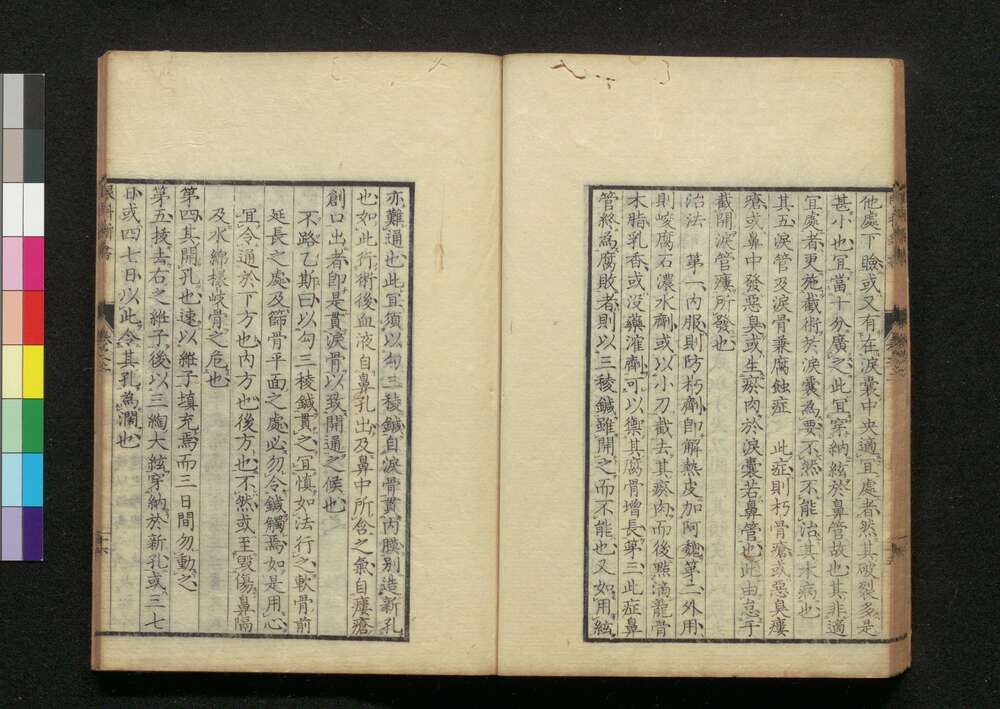 他處下瞼或又有在淚囊中央適宜處者然其破裂多是
甚小也宜當十分廣之此宜穿納絃於鼻管故也其非適
宜處者更施截術於淚囊為要不然不能治其本病也
其五淚管及淚骨兼腐蝕症 此症則朽骨瘡或惡臭瘻
瘡或鼻中發惡臭或生瘀肉於淚囊若鼻管也此由怠于
截開淚管瘻所發也
治法 第一內服則防朽劑即解熱皮加阿魏第二外用
則峻腐石濃水劑或以小刀截去其瘀肉而後點滴龍骨
木脂乳香或沒藥灌劑可以禦其腐骨增長第三此症鼻
管終為腐敗者則以三稜鍼雖開之而不能也又如用絃
亦難通也此宜須以勾三稜鍼自淚骨貫內膜別造新孔
也如此行術後血液自鼻孔出及鼻中所含之氣自瘻瘡
創口出者即是貫淚骨以致開通之候也
不路乙斯曰以勾三稜鍼貫之宜慎如法行之軟骨前
延長之處及篩骨平面之處必勿令鍼觸焉如是用心
宜令通於下方也內方也後方也不然或至毀傷鼻隔
及水綿樣岐骨之危也
第四其開孔也速以維子填充焉而三日間勿動之
第五拔去右之維子後以三綯大絃穿納於新孔或三七
日或四七日以此令其孔為濶也
眼科新書